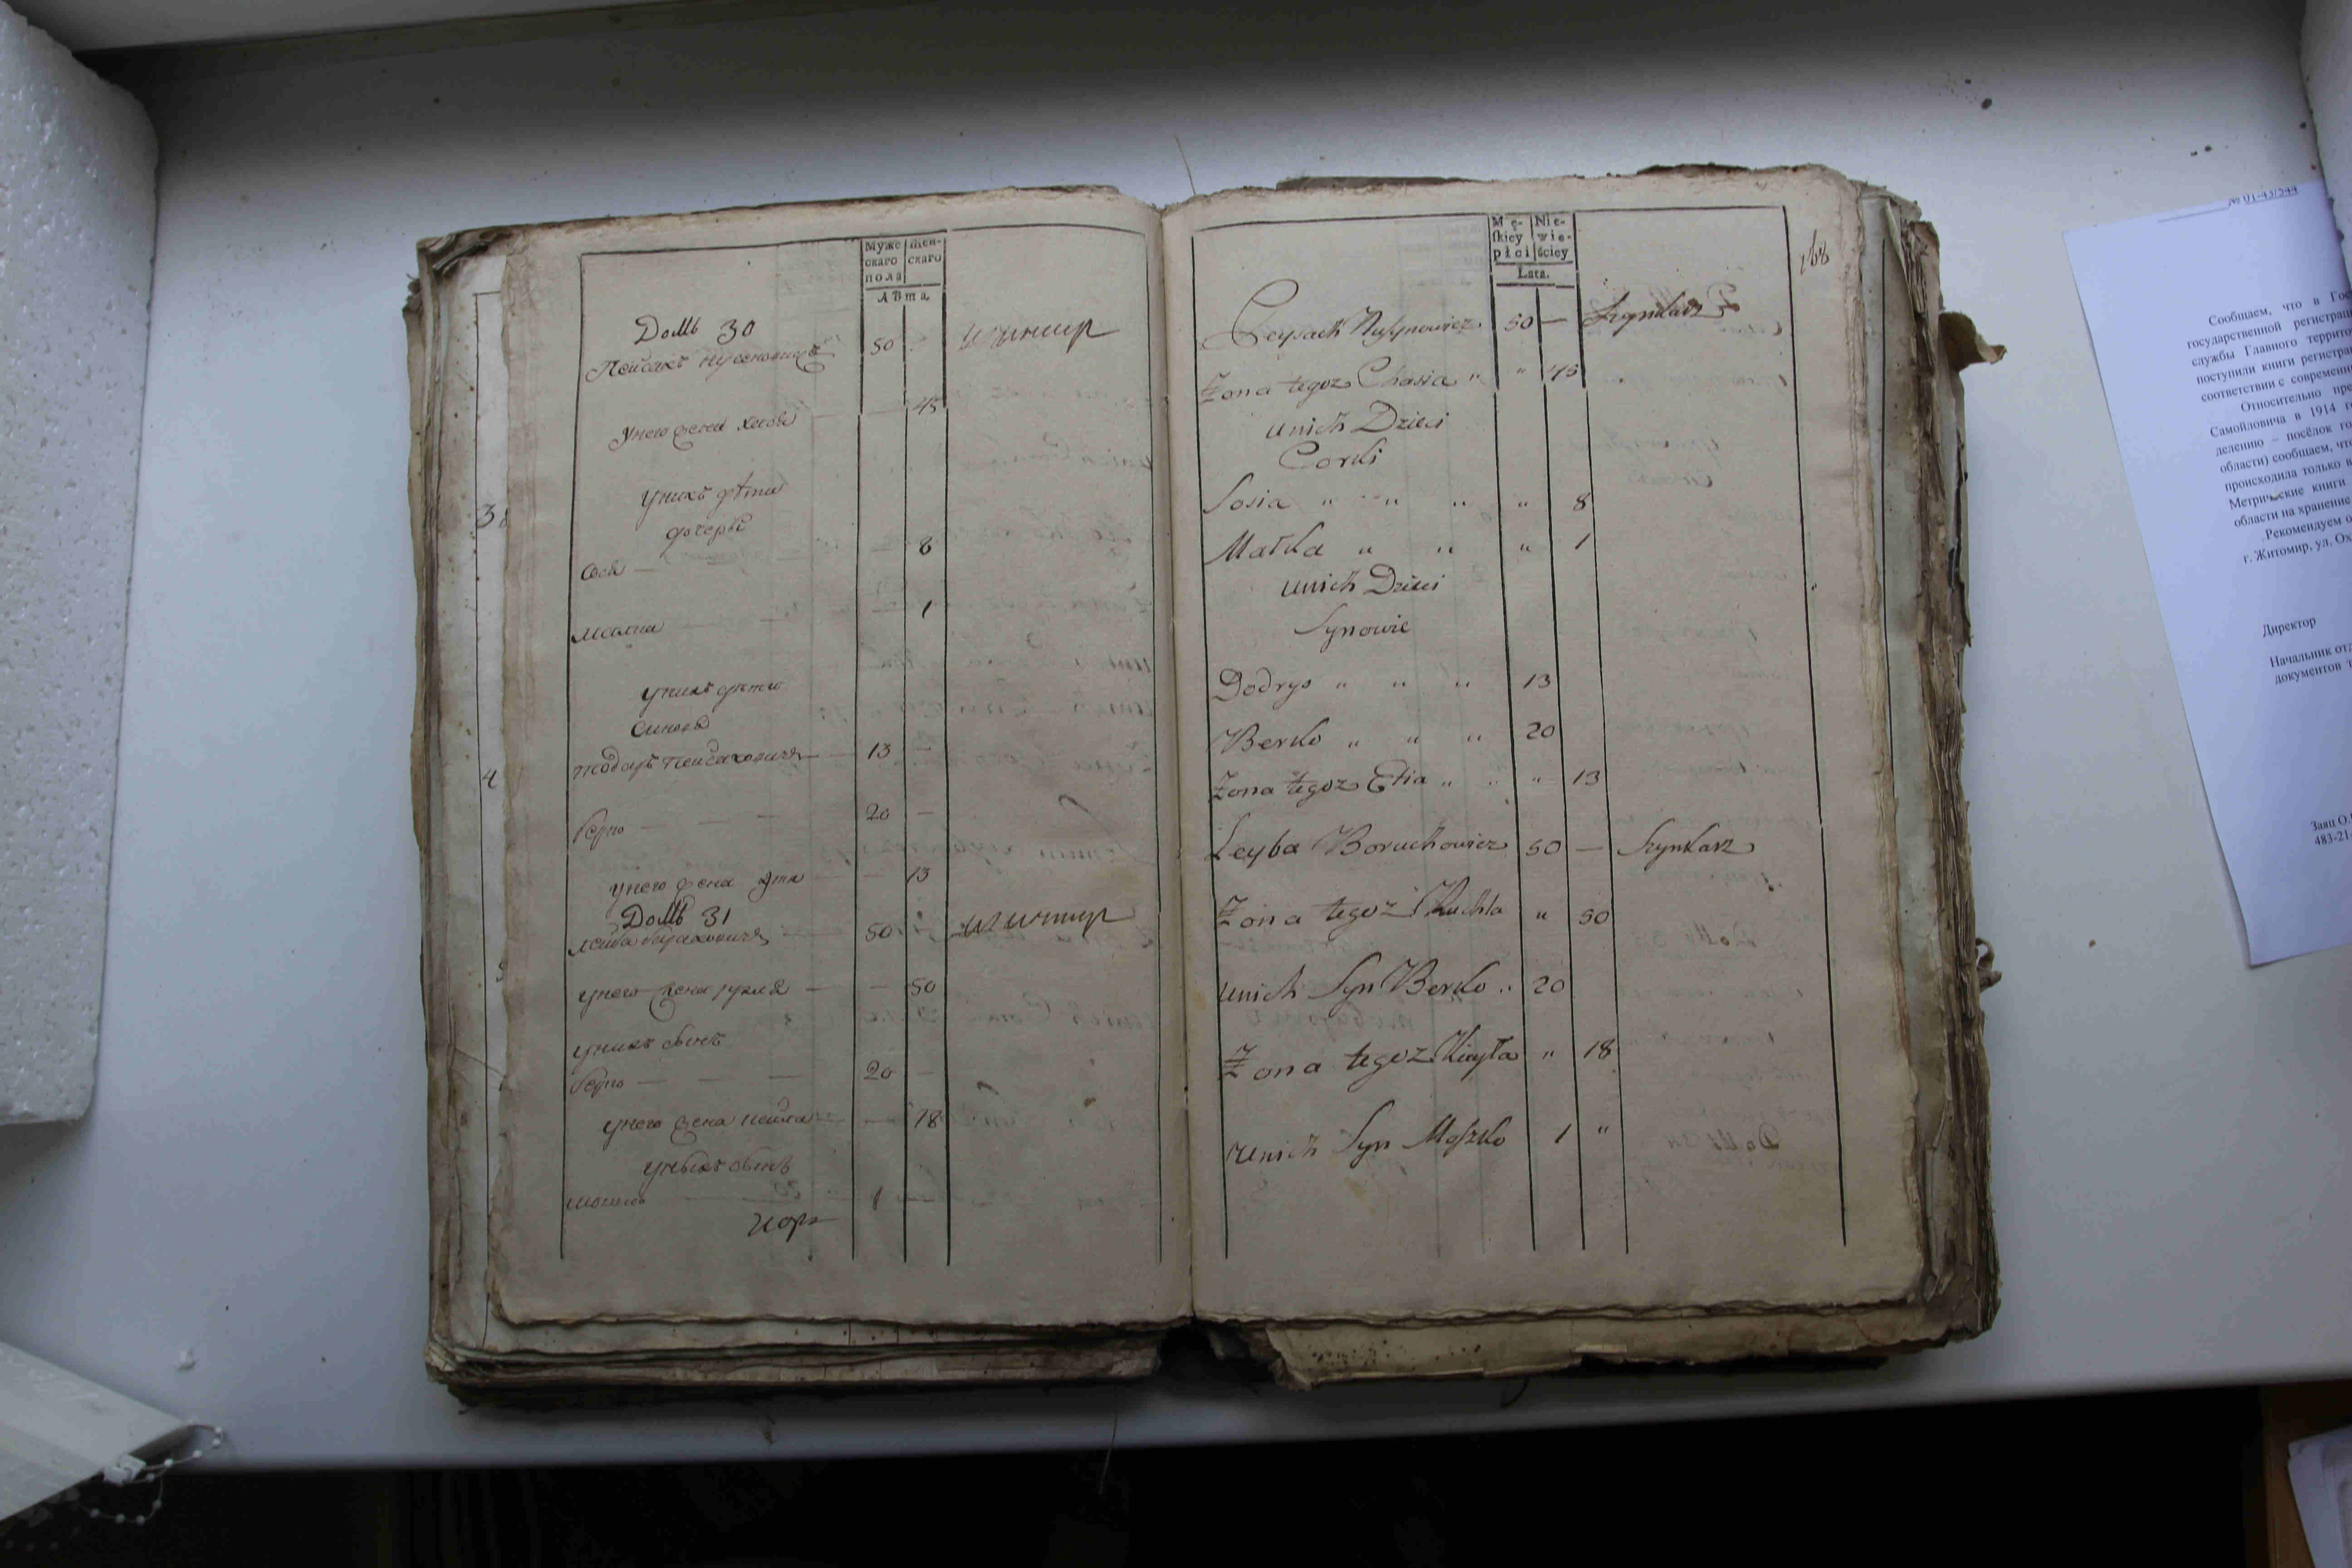 Муже
скаго
пола
Жен-
скаго
Лѣта
Домъ 30
Пейсахъ Нусеновичъ 50 шинкар
У него жена Хася 45
У нихъ дѣти
дочери
Сося 8
Малка 1
У нихъ дѣти
Синовя
13
Берко 20
У него женаЭтя 13
Домъ 31
Лейба Борухович 50 шинкар
У него жена Рухля 50
У нихъ сынъ
Берко 20
У него жена Кейла 18
У нихъ сынъ
Мошко 1
Mę-
skiey
płci
Nie-
wie-
ściey
Lata.
168
Peysach Nusynowicz 50 — Szynkarz
Zona tegoz Chasia " " 45
u nich Dzieci
Corki
Sosia " " " " 8
Małka " " " 1
u nich Dzieci
Synowie
Dodrys " " " 13
Berko " " " 20
Zona tegoz Etia " " " 13
Leyba Boruchowicz 50 — Szynkarz
Zona tegoz Ruchla " 50
u nich Syn Berko " 20
Zona tegoz Kieyła " 18
u nich Syn Moszko 1 "
3
4
№ 01-43/544
Сообщаем, что в Гос
государственной регистрац
службы Главного территор
поступили книги регистра
соответствии с современн
Относительно пре
Самойловича в 1914 г
делению – посёлок го
области) сообщаем, чт
происходила только в
Метрические книги
области на хранение
Рекомендуем о
г. Житомир, ул. Ох
Директор
Начальник отд
документов
Заяц О.
483-21-